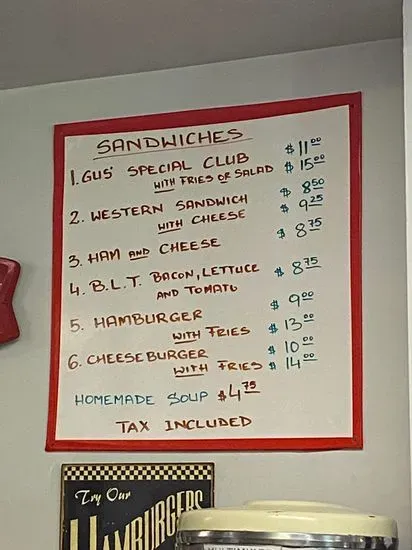 SANDWICHES
1. GUS' SPECIAL CLUB $11.00
WITH FRIES OR SALAD $15.00
2. WESTERN SANDWICH $8.50
WITH CHEESE $9.25
3. HAM AND CHEESE $8.75
4. B.L.T. BACON, LETTUCE $8.75
AND TOMATO
5. HAMBURGER $9.00
WITH FRIES $13.00
6. CHEESEBURGER $10.00
WITH FRIES $14.00
HOMEMADE SOUP $4.75
TAX INCLUDED
Try Our
HAMBURGERS